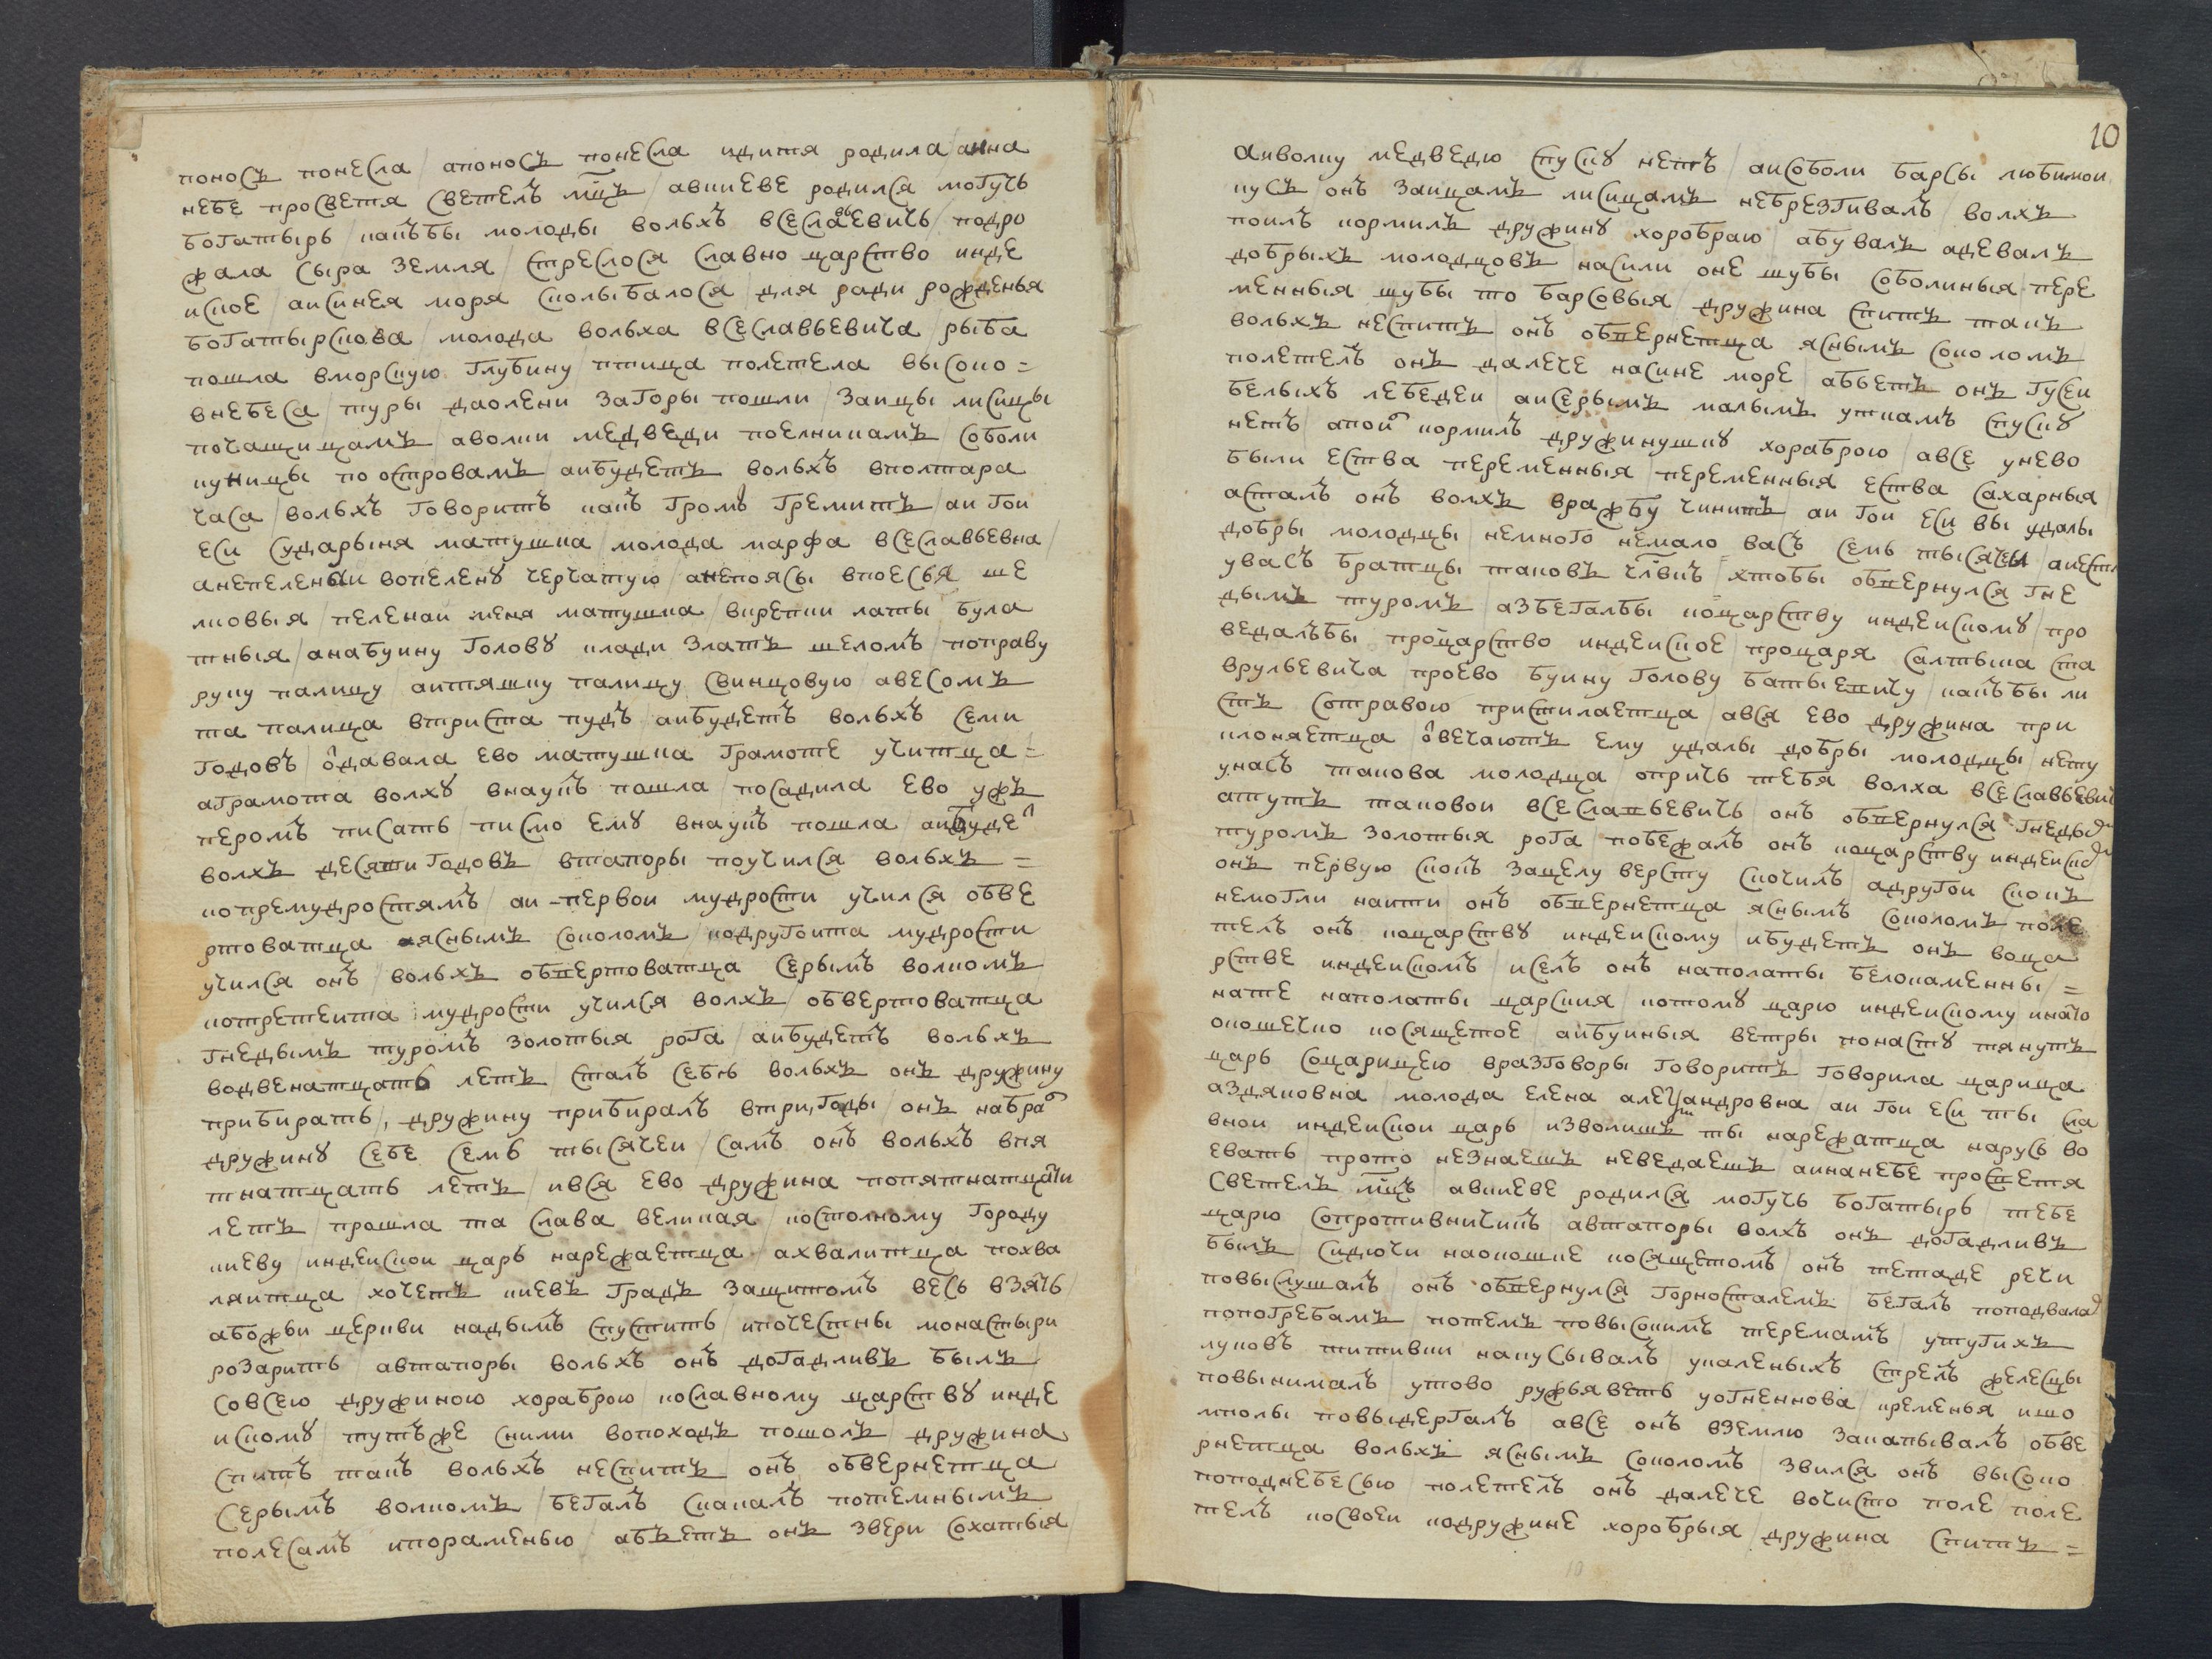 поносъ понесла / апоносъ понесла идитя родила / аина
небе просветя светелъ мцъ / авкиеве родился могучь
богатырь / какъбы молоды вольхъ всеславьевичь / подро
жала сыра земля / стреслося славно царство инде
иское / аисинея моря сколыбалося / для ради рожденья
богатырскова / молода вольха всеславьевича / рыба
пошла вморскую глубину / птица полетела высоко =
внебеса / туры даолени загоры пошли / заицы лисицы
почащицамъ / аволки медведи поелникамъ / соболи
куницы по островамъ / аибудетъ вольхъ вполтара
часа / вольхъ говоритъ какъ громъ гремитъ / аи гои
еси сударыня матушка / молода марфа всеславьевна /
анепеленаи вопелену чёрчатую / анепоясы впоесья ше
лковыя / пеленаи меня матушка / вкрепки латы була
тныя / анабуину голову клади златъ шеломъ / поправу
руку палицу / аитяшку палицу свинцовую / авесомъ
та палица втриста пудъ / аибудетъ вольхъ семи
годовъ / ѿдавала ево матушка грамоте учитца =
аграмота волху внаукъ пошла / посадила ево ужъ
перомъ писать / писмо ему внаукъ пошла / аибудеⷮ
волхъ десяти годовъ втапоры поучился вольхъ =
копремудростямъ / аи-первои мудрости учился обве
ртоватца яснымъ соколомъ / кодругоита мудрости
учился онъ / вольхъ обвертоватца серымъ волкомъ
котретеита мудрости учился волхъ / обвертоватца
гнедымъ туромъ золотыя рога / аибудетъ вольхъ
водвенатцать летъ / сталъ себе вольхъ онъ дружину
прибирать, дружину прибиралъ втри, годы / онъ набраⷧ
дружину себе семь тысячеи / самъ онъ вольхъ впя
тнатцать летъ / ився ево дружина попятнатцати
летъ / прошла та слава великая / костолному городу
киеву / индеискои царь нарежаетца / ахвалитца похва
ляитца / хочетъ киевъ градъ защитомъ весь взять /
абожьи церкви надымъ спустить / ипочестны монастыри
розарить / автапоры вольхъ онъ догадливъ былъ
совсею дружиною хораброю / кославному царству инде
искому / тутъже сними вопоходъ пошолъ / дружина
спитъ такъ вольхъ неспитъ онъ обвернетца
серымъ волкомъ / бегалъ скакалъ потемнымъ
полесамъ ипораменью / абъетъ онъ звери сохатыя
10
аиволку медведю спуску нетъ / аисоболи барсы любимои
кусъ / онъ заицамъ лисицамъ небрезгивалъ / волхъ
поилъ кормилъ дружину хоробраю / абувалъ адевалъ
добрыхъ молодцовъ / насили оне шубы соболиныя / пере
менныя шубы то барсовыя / дружина спитъ такъ
вольхъ неспитъ / онъ обвернетца яснымъ соколомъ
полетелъ онъ далече насине море / абьетъ онъ гусеи
белыхъ лебедеи / аисерымъ малымъ уткамъ спуску
нетъ / апоиⷧ кормилъ дружинушку хораброю / авсе унево
были ества переменныя / переменныя ества сахарныя
асталъ онъ волхъ вражбу чинить / аи гои еси вы удалы
добры молодцы / немного немало васъ семь тысячеи / аиесть
увасъ братцы таковъ члвкъ / хтобы обвернулся гне
дымъ туромъ / азбегалбы коцарству индеискому / про
ведалъбы процарство индеиское / процаря салтыка ста
врульевича / проево буину голову батыевичу / какъбы ли
стъ стравою пристилаетца / ався ево дружина при
клоняетца / ѿвечаютъ ему удалы добры молодцы / нету
унасъ такова молодца / опричь тебя волха всеславьевича
атутъ таковои всеславьевичь онъ обвернулся гнедыⷨ
туромъ золотыя рога / побежалъ онъ коцарству индеискоⷨ
онъ первую скокъ зацелу версту скочилъ / адругои скокъ
немогли наити / онъ обвернетца яснымъ соколомъ / поле
телъ онъ коцарству индеискому / ибудетъ онъ воца
рстве индеискомъ / иселъ онъ наполаты белокаменны / =
нате наполаты царския / котому царю индеискому инато
окошечко косящетое / аибуиныя ветры понасту тянутъ
царь соцарицею вразговоры говоритъ / говорила царица
аздяковна / молода елена алеѯандровна / аи гои еси ты сла
внои индеискои царь / изволишъ ты нарежатца наруcь во
евать прото незнаешъ неведаешъ / аинанебе просветя
светелъ мцъ / авкиеве родился могучь богатырь / тебе
царю сопротивничикъ / автапоры волхъ онъ догадливъ
былъ / сидючи наокошке косящетомъ / онъ тетаде речи
повыслушалъ / онъ обвернулся горносталемъ / бегалъ поподваламъ
попогребамъ / потемъ повысокимъ теремамъ / утугихъ
луковъ титивки накусывалъ / укаленыхъ стрелъ железцы
повынималъ / утово ружьяветь уогненнова / кременья ишо
мполы повыдергалъ / авсе онъ вземлю закапывалъ / обве
рнетца вольхъ яснымъ соколомъ / звился онъ высоко
поподнебесью / полетелъ онъ далече вочисто поле / поле
телъ косвоеи кодружине хоробрыя / дружина спитъ =
10